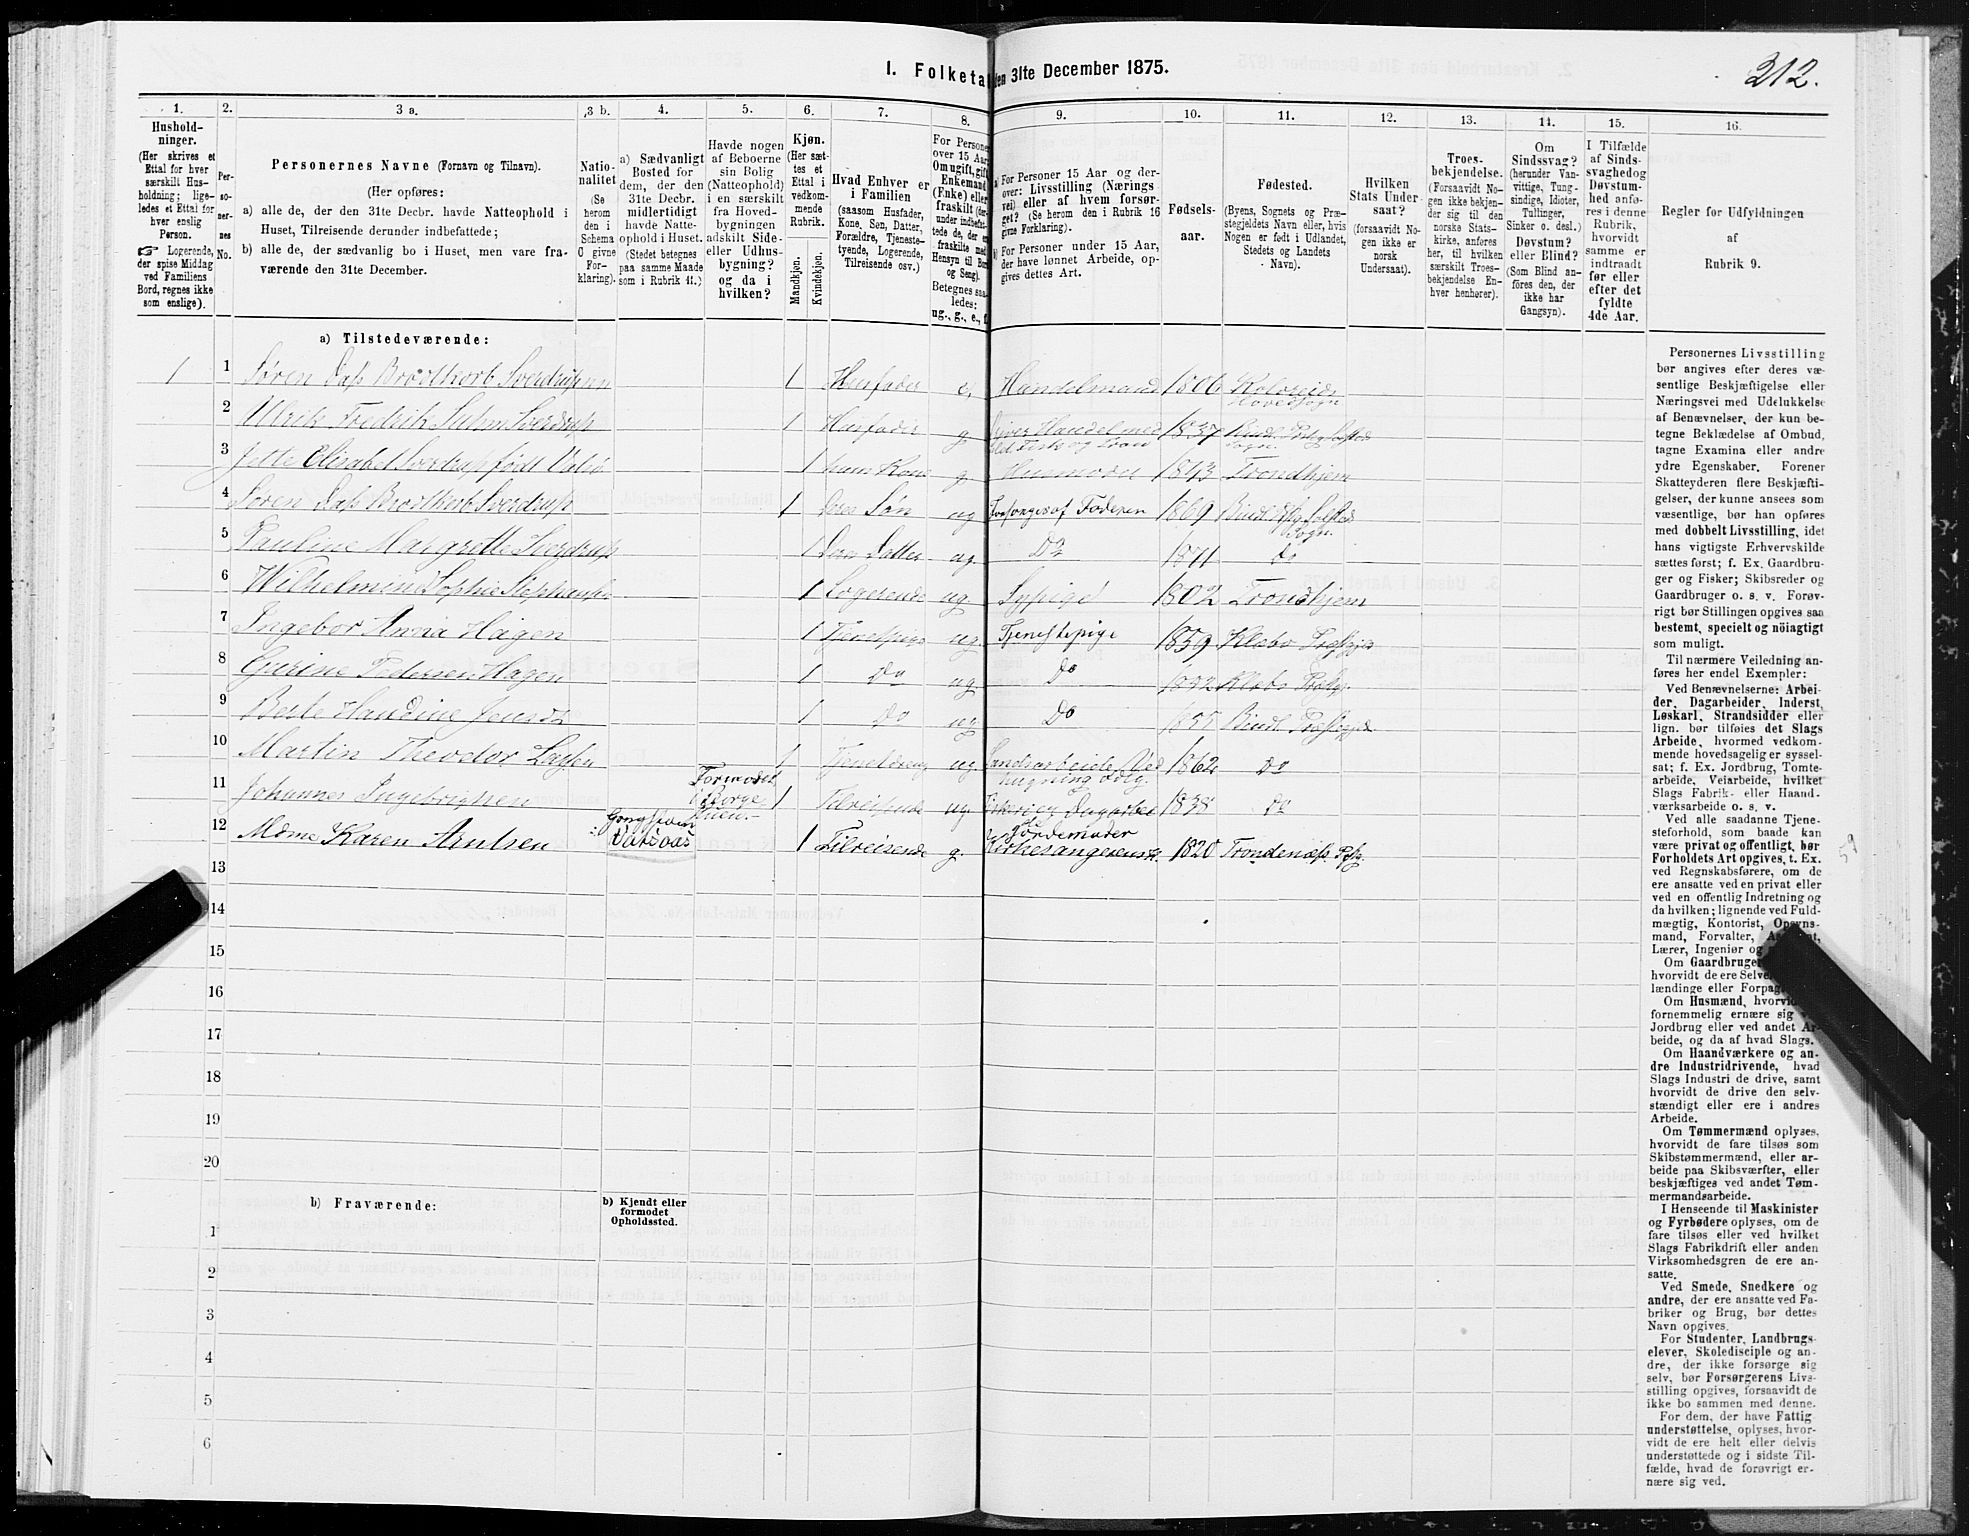 312.
I. Folketal den 31te December 1875.
1. 2. 3 a. 3 b. 4. 5. 6. 7. 8. 9. 10. 11. 12. 13. 14. 15. 16.
Hushold-
ninger.
(Her skrives et
Ettal for hver
særskilt Hus-
holdning; lige-
ledes et Ettal for
hver enslig
Person.
☞ Logerende,
der spise Middag
ved Familiens
Bord, regnes ikke
som enslige).
Per-
so-
ner-
nes
No.
Personernes Navne (Fornavn og Tilnavn).
(Her opføres:
a) alle de, der den 31te Decbr. havde Natteophold i
Huset, Tilreisende derunder indbefattede;
b) alle de, der sædvanlig bo i Huset, men vare fra-
værende den 31te December.
Natio-
nalitet
(Se
herom
den i
Schema
O givne
For-
klaring).
a) Sædvanligt
Bosted for
dem, der den
31te Decbr.
midlertidigt
havde Natte-
ophold i Huset.
(Stedet betegnes
paa samme Maade
som i Rubrik 11.)
Havde nogen
af Beboerne
sin Bolig
(Natteophold)
i en særskilt
fra Hoved-
bygningen
adskilt Side-
eller Udhus-
bygning?
og da i
hvilken?
Kjøn.
(Her sæt-
tes et
Ettal i
vedkom-
mende
Rubrik.
Mandkjøn.
Kvindekjøn.
Hvad Enhver er
i Familien
(saasom Husfader,
Kone, Søn, Datter,
Forældre, Tjeneste-
tyende, Logerende,
Tilreisende osv.)
For Personer
over 15 Aar:
Omugift, gift,
Enkemand
(Enke) eller
fraskilt (der-
under indbefat-
tede de, der er
fraskilte med
Hensyn til Bord
og Seng).
Betegnes saa-
ledes:
ug., g., e., f.
a) For Personer 15 Aar og der-
over: Livsstilling (Nærings-
vei) eller af hvem forsør-
get? (Se herom den i Rubrik 16
givne Forklaring).
b) For Personer under 15 Aar,
der have lønnet Arbeide, op-
gives dettes Art.
Fødsels-
aar.
Fødested.
(Byens, Sognets og Præ-
stegjeldets Navn eller, hvis
Nogen er født i Udlandet,
Stedets og Landets
Navn).
Hvilken
Stats Under-
saat?
(forsaavidt No-
gen ikke er
norsk
Undersaat).
Troes-
bekjendelse.
(Forsaavidt No-
gen ikke bekjen-
der sig til den
norske Stats-
kirke, anføres
her, til hvilken
særskilt Troes-
bekjendelse En-
hver henhører).
Om
Sindssvag?
(herunder Van-
vittige, Tung-
sindige, Idioter,
Tullinger,
Sinker o. desl.)
Døvstum?
eller Blind?
(Som Blind an-
føres den, der
ikke har
Gangsyn).
I Tilfælde
af Sinds-
svaghed og
Døvstum-
hed anfø-
res i denne
Rubrik,
hvorvidt
samme er
indtraadt
før eller
efter det
fyldte
4de Aar.
Regler for Udfyldningen
af
Rubrik 9.
a) Tilstedeværende:
1 1 Søren Dass Brodtkorb Sverdrup 1 Husfader e. Handelmand 1806 Kolvreids Hovedsogn
2 Ulrik Fredrik Suhm Sverdrup 1 Husfader g. Driver Handel med Sild Fisk og Tran 1837 Bind. Præstg. Solstad Sogn
3 Jette Elisabet Sverdrup født 1 hans Kone g. Husmoder 1843 Trondhjem
4 Søren Dass Brodtkorb Sverdrup 1 Deres Søn ug Forsørges af Faderen 1869 Bind. Solstad Sogn.
5 Pauline Margrette Sverdrup 1 Deres Datter ug. Do 1871 Do
6 Wilhelmine Sophie Stephansen 1 Logerende ug Sypige 1802 Trondhjem
7 Ingebor Anna Hagen 1 Tjenestpige ug. Tjenestepige 1859 Klæbo Præstgj.
8 Gurine Pedersen Hagen 1 Do ug. Do Klæbo Præstgj.
9 Berte Handine 1 Do ug Do 1855 Bind. Præstgjd.
10 Martin Theodor 1 Tjenestdreng ug Landsarbeide Ved hugning odlg. 1862 Do
11 Johannes Ingebrigtsen Formodet 1 Tilreisende ug. Dagarbei 1838 Do
12 Mdme Karen Arntsen 1 Tilreisende g. Jordemoder Kirkesanger 1820 Trondenæs. Pstg.
13
14
15
16
17
18
19
20
b) Fraværende:
b) Kjendt eller
formodet
Opholdssted.
1
2
3
4
5
6
Personernes Livsstilling
bør angives efter deres væ-
sentlige Beskjæftigelse eller
Næringsvei med Udelukkelse
af Benævnelser, der kun be-
tegne Beklædelse af Ombud,
tagne Examina eller andre
ydre Egenskaber. Forener
Skatteyderen flere Beskjæfti-
gelser, der kunne ansees som
væsentlige, bør han opføres
med dobbelt Livsstilling, idet
hans vigtigste Erhvervskilde
sættes først; f. Ex. Gaardbru-
ger og Fisker; Skibsreder og
Gaardbruger o. s. v. Forøv-
rigt bør Stillingen opgives saa
bestemt, specielt og nöiagtigt
som muligt.
Til nærmere Veiledning an-
føres her endel Exempler:
Ved Benævnelserne: Arbei-
der, Dagarbeider, Inderst,
Løskarl, Strandsidder eller
lign. bør tilføies det Slags
Arbeide, hvormed vedkom-
mende hovedsagelig er syssel-
sat; f. Ex. Jordbrug, Tomte-
arbeide, Veiarbeide, hvilket
Slags Fabrik- eller Haand-
værksarbeide o. s. v.
Ved alle saadanne Tjene-
steforhold, som baade kan
være privat og offentligt, bør
Forholdets Art opgives, t. Ex.
ved Regnskabsførere, om de
ere ansatte ved en privat eller
ved en offentlig Indretning og
da hvilken; lignende ved Fuld-
mægtig, Kontorist, Opsyns-
mand, Forvalter,
Lærer, Ingeniør og
Om Gaardbruger
hvorvidt de ere
lændinge eller
Om Husmænd,
fornemmelig ernære sig
Jordbrug eller ved andet Ar-
beide, og da af hvad Slags.
Om Haandværkere og an-
dre Industridrivende, hvad
Slags Industri de drive, samt
hvorvidt de drive den selv-
stændigt eller ere i andres
Arbeide.
Om Tømmermænd oplyses,
hvorvidt de fare tilsøs som
Skibstømmermænd, eller ar-
beide paa Skibsværfter, eller
beskjæftiges ved andet Tøm-
mermandsarbeide.
I Henseende til Maskinister
og Fyrbødere oplyses, om de
fare tilsøs eller ved hvilket
Slags Fabrikdrift eller anden
Virksomhedsgren de ere an-
satte.
Ved Smede, Snedkere og
andre, der ere ansatte ved Fa-
briker og Brug, bør dettes
Navn opgives.
For Studenter, Landbrugs-
elever, Skoledisciple og an-
dre, der ikke forsørge sig
selv, bør Forsørgerens Livs-
stilling opgives, forsaavidt de
ikke bo sammen med denne.
For dem, der have Fattig
understøttelse, oplyses, hvor-
vidt de ere helt eller delvis
understøttede og i sidste Til-
fælde, hvad de forøvrigt er-
nære sig ved.